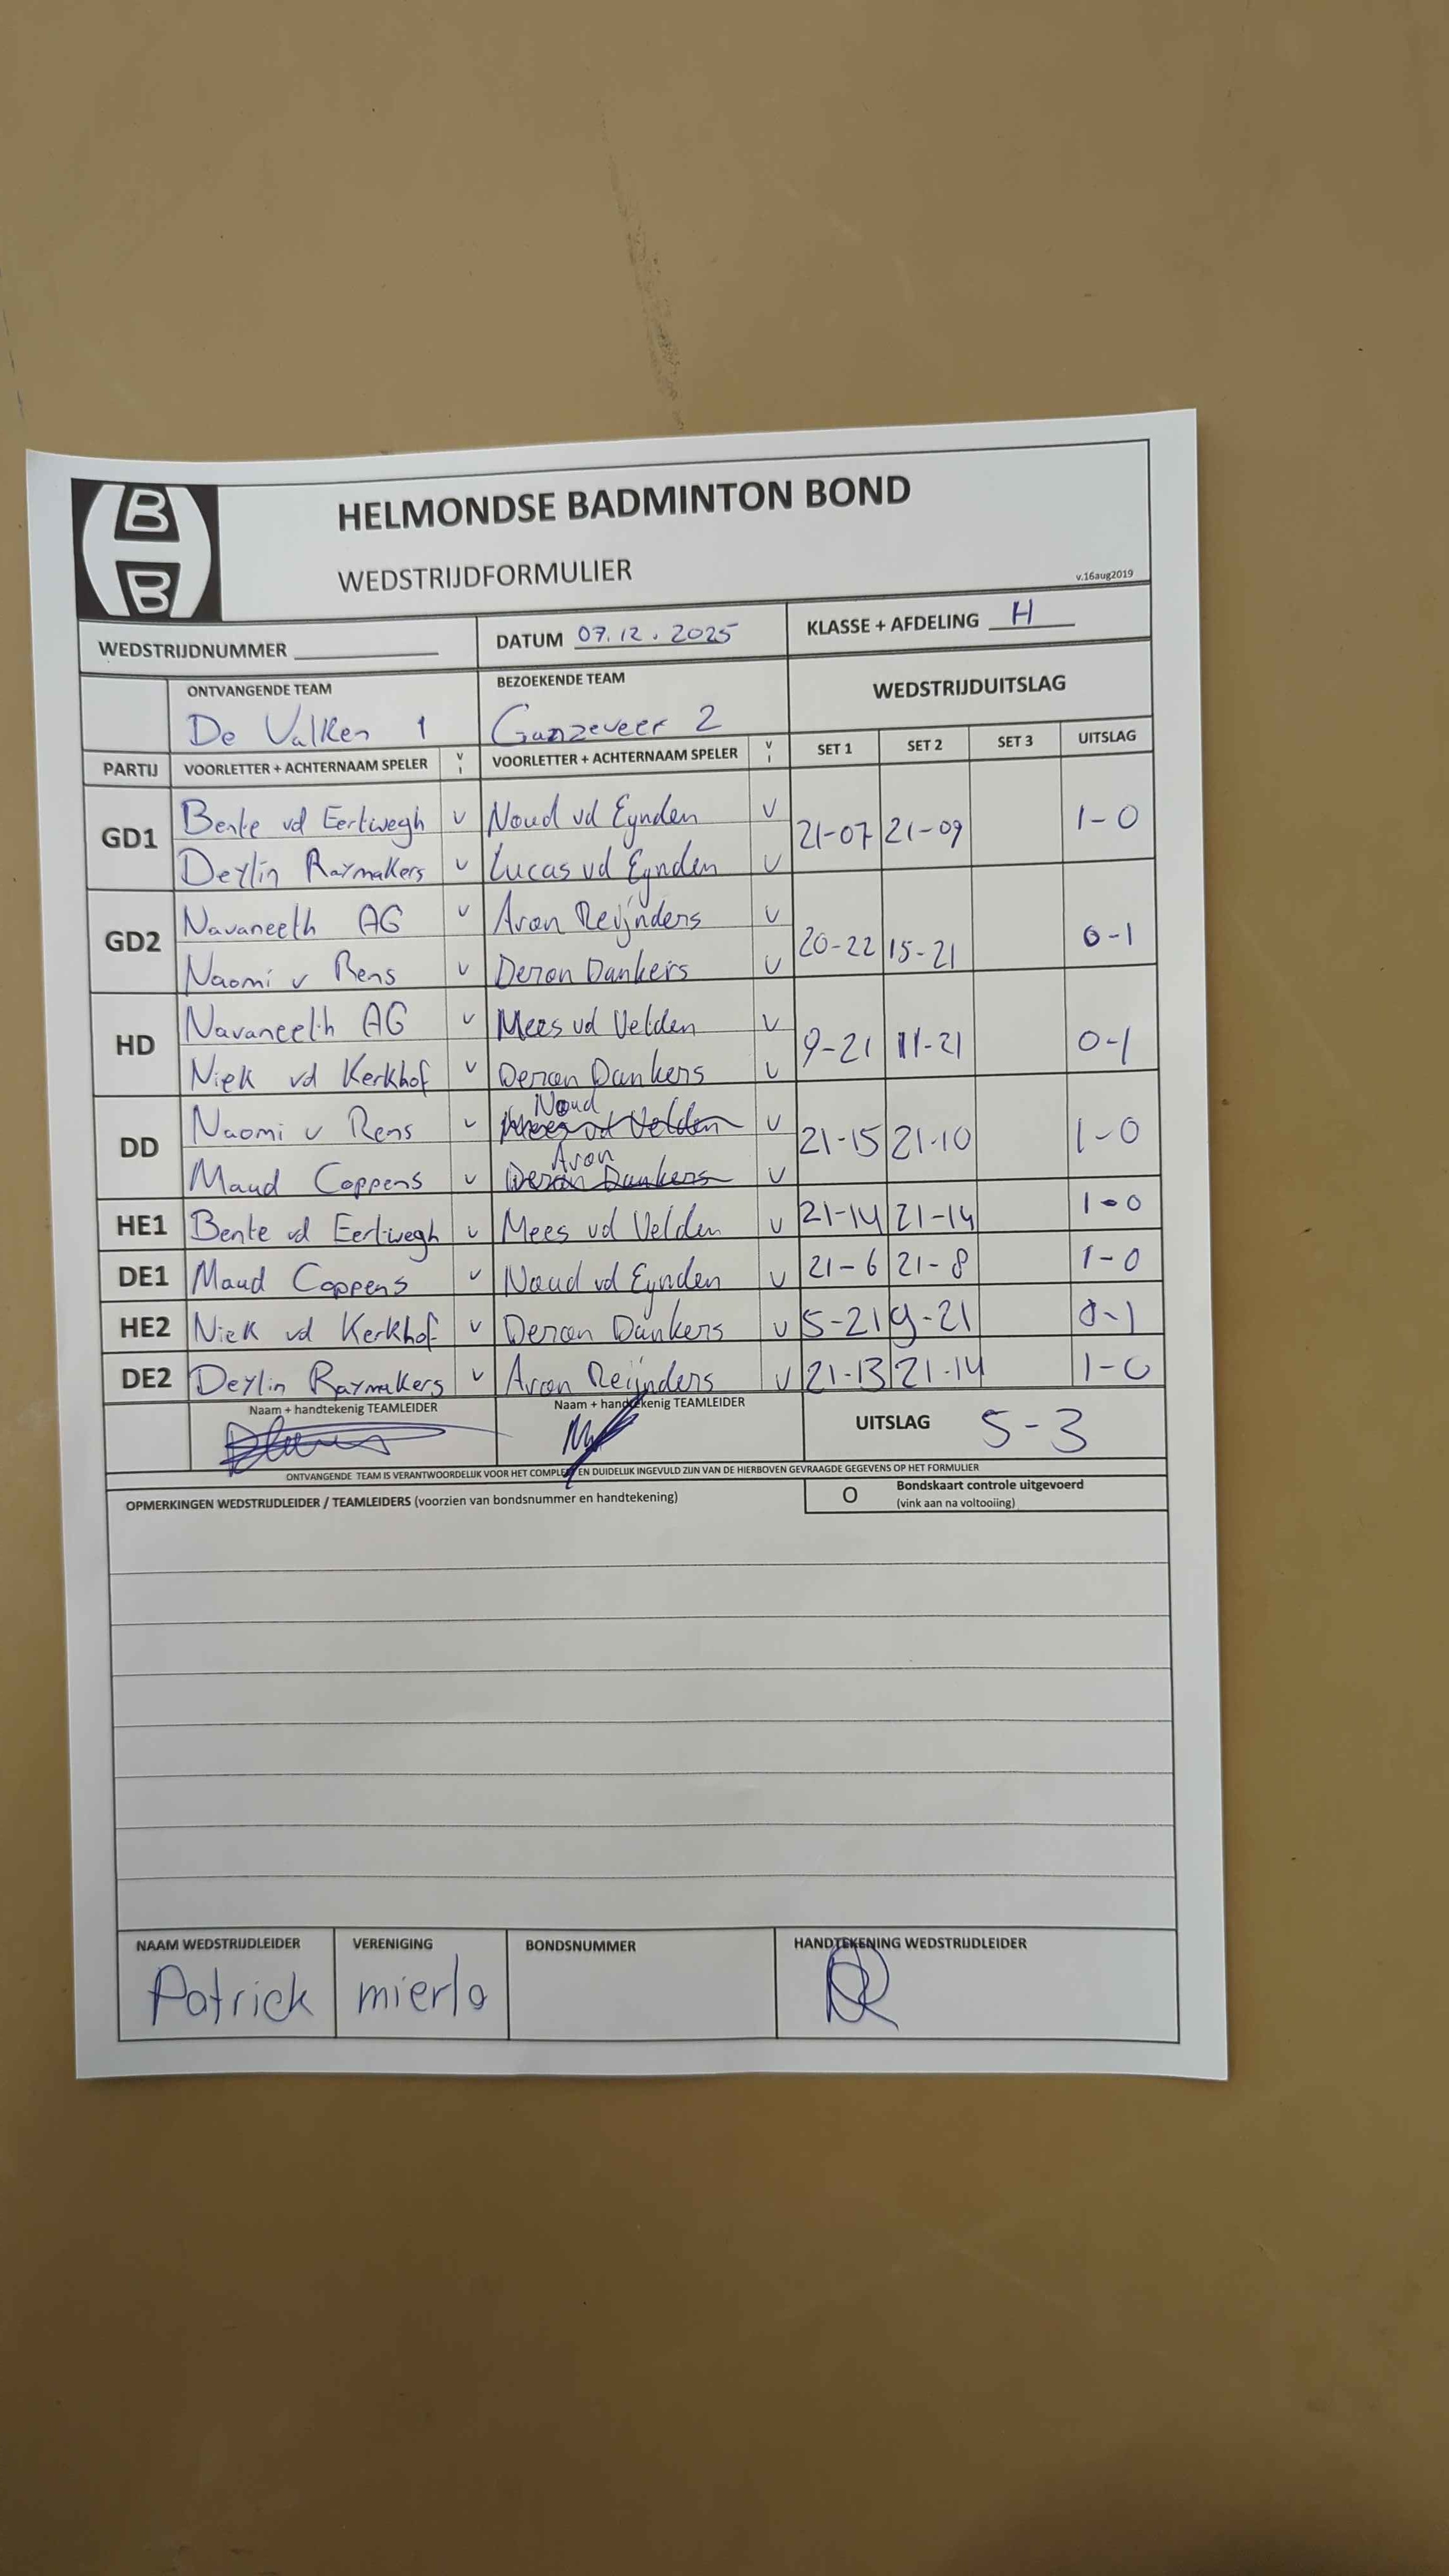 B
B
HELMONDSE BADMINTON BOND
WEDSTRIJDFORMULIER
v.16aug2019
WEDSTRIJDNUMMER
DATUM 07.12.2025
KLASSE + AFDELING H
ONTVANGENDE TEAM
BEZOEKENDE TEAM
WEDSTRIJDUITSLAG
De Valken 1
Ganzeveer 2
PARTIJ VOORLETTER + ACHTERNAAM SPELER V I VOORLETTER + ACHTERNAAM SPELER V I SET 1 SET 2 SET 3 UITSLAG
GD1 Bente vd Eertwegh v Noud vd Eynden v 21-07 21-09 1-0
Deylin Raymakers v Lucas vd Eynden v
GD2 Navaneeth AG v Aron Reijnders v 20-22 15-21 0-1
Naomi v Rens v Deron Dankers v
HD Navaneeth AG v Mees vd Velden v 9-21 11-21 0-1
Niek vd Kerkhof v Deron Dankers v
DD Naomi v Rens v Noud Mees vd Velden v 21-15 21-10 1-0
Maud Coppens v Aron Deron Dankers v
HE1 Bente vd Eertwegh v Mees vd Velden v 21-14 21-14 1-0
DE1 Maud Coppens v Noud vd Eynden v 21-6 21-8 1-0
HE2 Niek vd Kerkhof v Deron Dankers v 5-21 9-21 0-1
DE2 Deylin Raymakers v Aron Reijnders v 21-13 21-14 1-0
Naam + handtekenig TEAMLEIDER
Naam + handtekenig TEAMLEIDER
UITSLAG 5-3
ONTVANGENDE TEAM IS VERANTWOORDELIJK VOOR HET COMPLEET EN DUIDELIJK INGEVULD ZIJN VAN DE HIERBOVEN GEVRAAGDE GEGEVENS OP HET FORMULIER
OPMERKINGEN WEDSTRIJDLEIDER / TEAMLEIDERS (voorzien van bondsnummer en handtekening)
O Bondskaart controle uitgevoerd
(vink aan na voltooiing)
NAAM WEDSTRIJDLEIDER VERENIGING BONDSNUMMER HANDTEKENING WEDSTRIJDLEIDER
Patrick mierlo